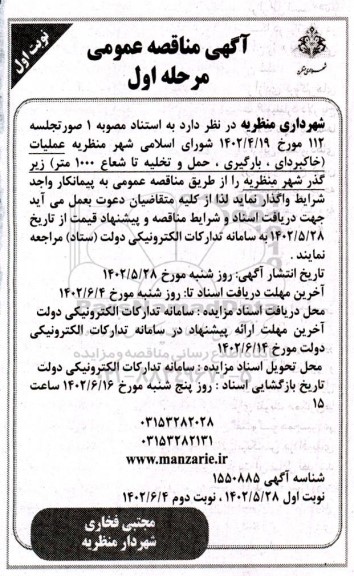 نوبت اول
آگهی مناقصه عمومی
مرحله اول
شهرداری منظریه در نظر دارد به استناد مصوبه ۱ صورتجلسه
۱۱۲ مورخ ۱۴۰۲/۴/۱۹ شورای اسلامی شهر منظریه عملیات
(خاکبرداری ، بارگیری ، حمل و تخلیه تا شعاع ۱۰۰۰ متر) زیر
گذر شهر منظریه را از طریق مناقصه عمومی به پیمانکار واجد
شرایط واگذار نماید لذا از کلیه متقاضیان دعوت بعمل می آید
جهت دریافت اسناد و شرایط مناقصه و پیشنهاد قیمت از تاریخ
۱۴۰۲/۵/۲۸ به سامانه تدارکات الکترونیکی دولت (ستاد) مراجعه
نمایند .
تاریخ انتشار آگهی: روز شنبه مورخ ۱۴۰۲/۵/۲۸
آخرین مهلت دریافت اسناد تا: روز شنبه مورخ ۱۴۰۲/۶/۴
محل دریافت اسناد مزایده : سامانه تدارکات الکترونیکی دولت
آخرین مهلت ارائه پیشنهاد در سامانه تدارکات الکترونیکی
دولت مورخ ۱۴۰۲/۶/۱۴
محل تحویل اسناد مزایده : سامانه تدارکات الکترونیکی دولت
تاریخ بازگشایی اسناد : روز پنج شنبه مورخ ۱۴۰۲/۶/۱۶ ساعت
۱۵
۰۳۱۵۳۲۸۲۰۲۸
۰۳۱۵۳۲۸۲۱۳۱
www.manzarie.ir
شناسه آگهی ۱۵۵۰۸۸۵
نوبت اول ۱۴۰۲/۵/۲۸ ، نوبت دوم ۱۴۰۲/۶/۴
مجتبی فخاری
شهردار منظریه